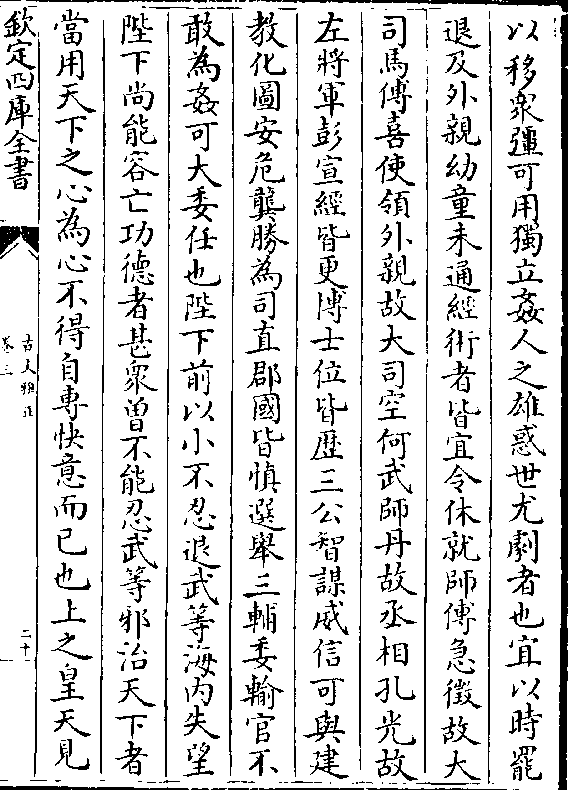 以移衆彊可用獨立姦人之雄惑世尤劇者也宜以時罷
退及外親幼童未通經術者皆宜令休就師傅急徵故大
司馬傅喜使領外親故大司空何武師丹故丞相孔光故
左將軍彭宣經皆更博士位皆歷三公智謀威信可與建
教化圖安危龔勝為司直郡國皆慎選舉三輔委輸官不
敢為姦可大委任也陛下前以小不忍退武等海内失望
陛下尚能容亡功德者甚衆曽不能忍武等邪治天下者
當用天下之心為心不得自專快意而已也上之皇天見
欽定四庫全書
古文雅正
卷三
二十